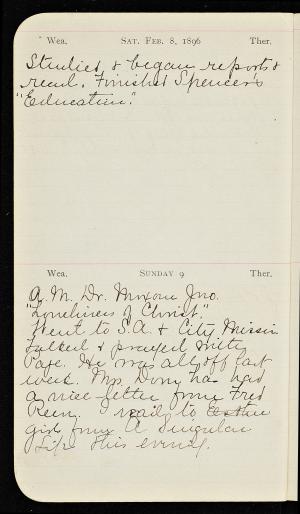 Wea. SAT. FEB. 8, 1896 Ther.
Studied & began reports &
read. Finished Spencer's
"Education."
Wea. SUNDAY 9 Ther.
A.M. Dr. Moxom Jno.
"Loneliness of Christ."
Went to S.A. & City Mission
talked & prayed with
He was all off last
week. Mrs. has had
a nice letter from Fred
I read to
girls from A Singular
Life this evening.